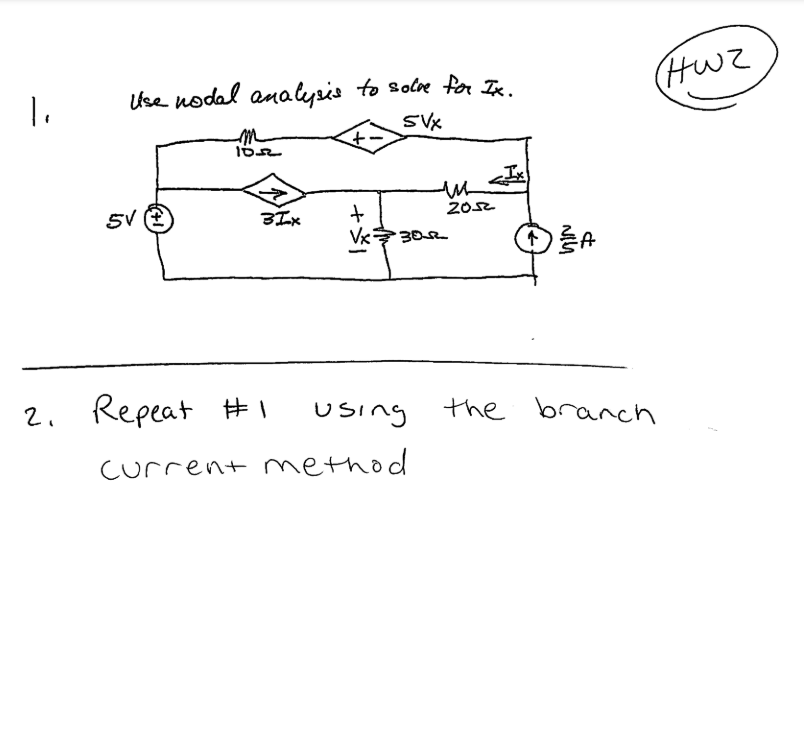 HW2
1. Use nodal analysis to solve for Ix.
5Vx
10Ω
+ -
Ix
20Ω
5V + -
3Ix
+
Vx 30Ω
-
2/5 A
2. Repeat #1 using the branch
current method